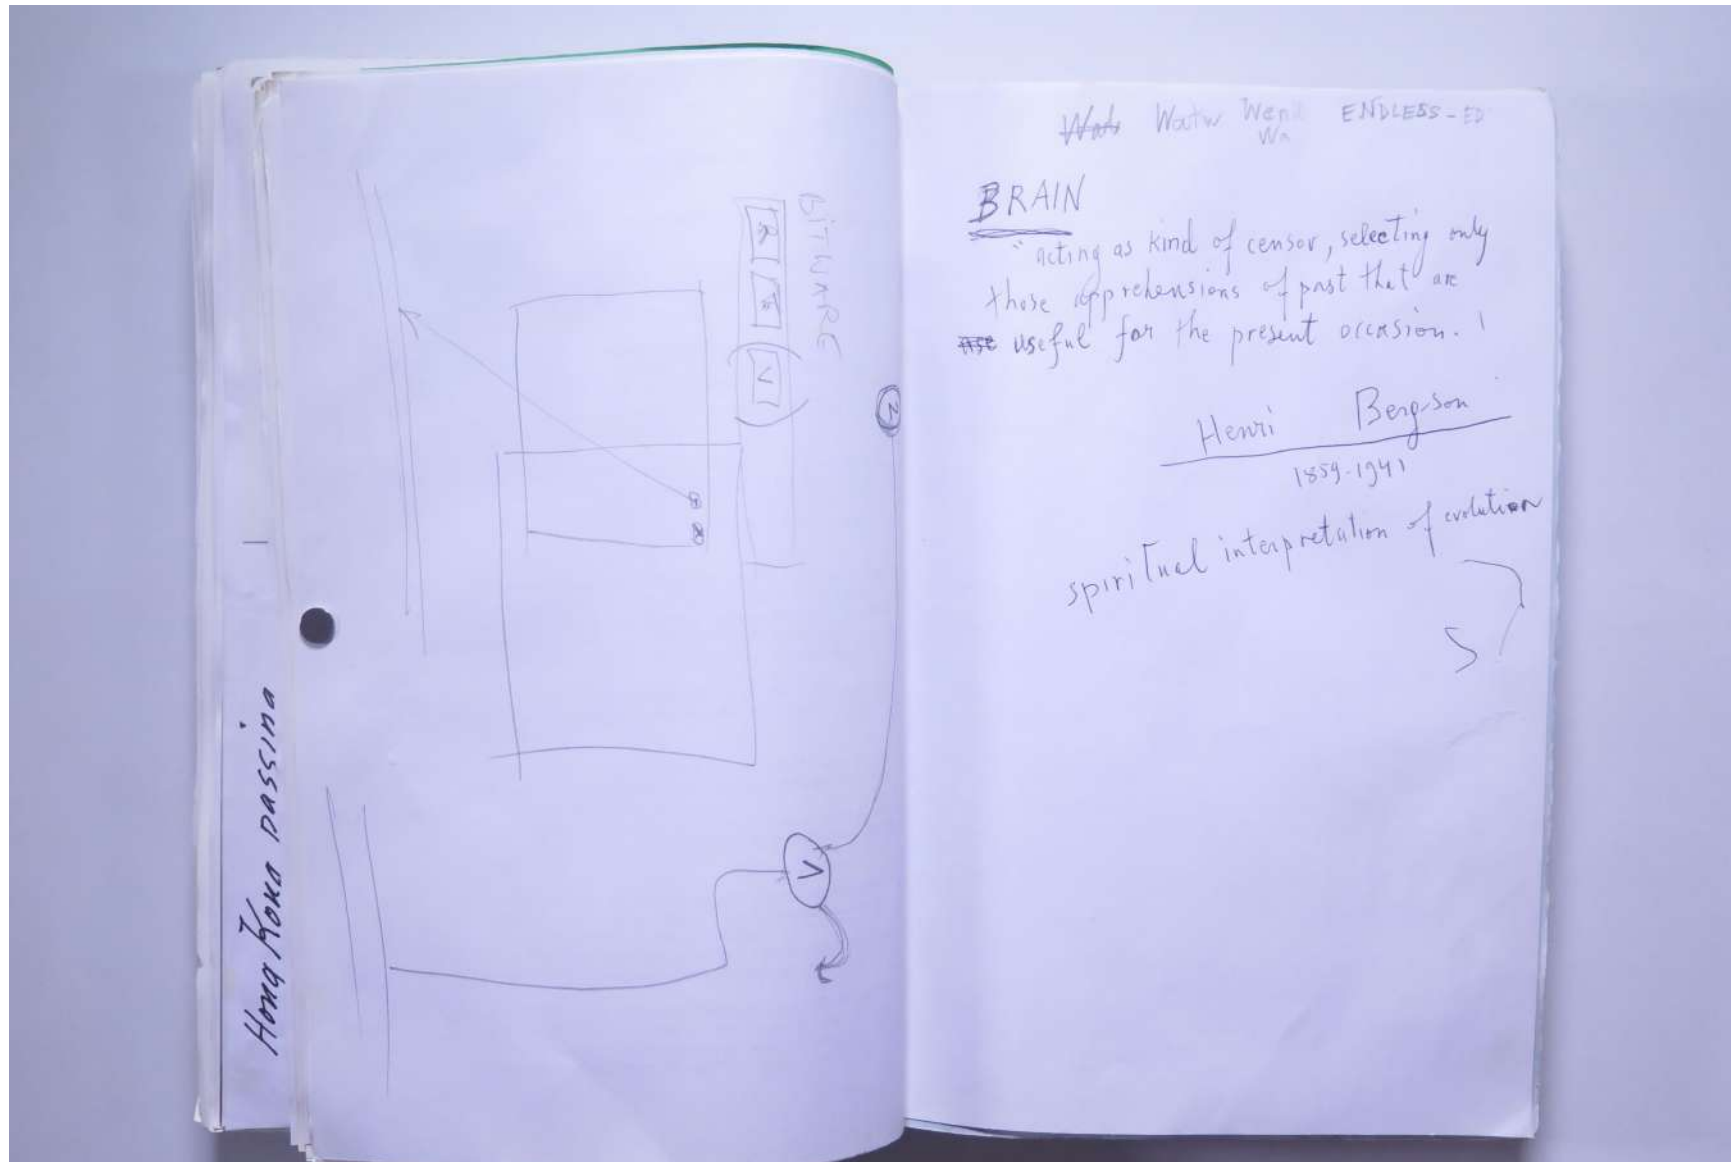 Hong Kong passing
BITWARE
R
V
2
V
Watw Wen ENDLESS-ED
Wa
BRAIN
"acting as kind of censor, selecting only
those apprehensions of past that are
useful for the present occasion.
Henri Bergson
1859-1941
spiritual interpretation of evolution